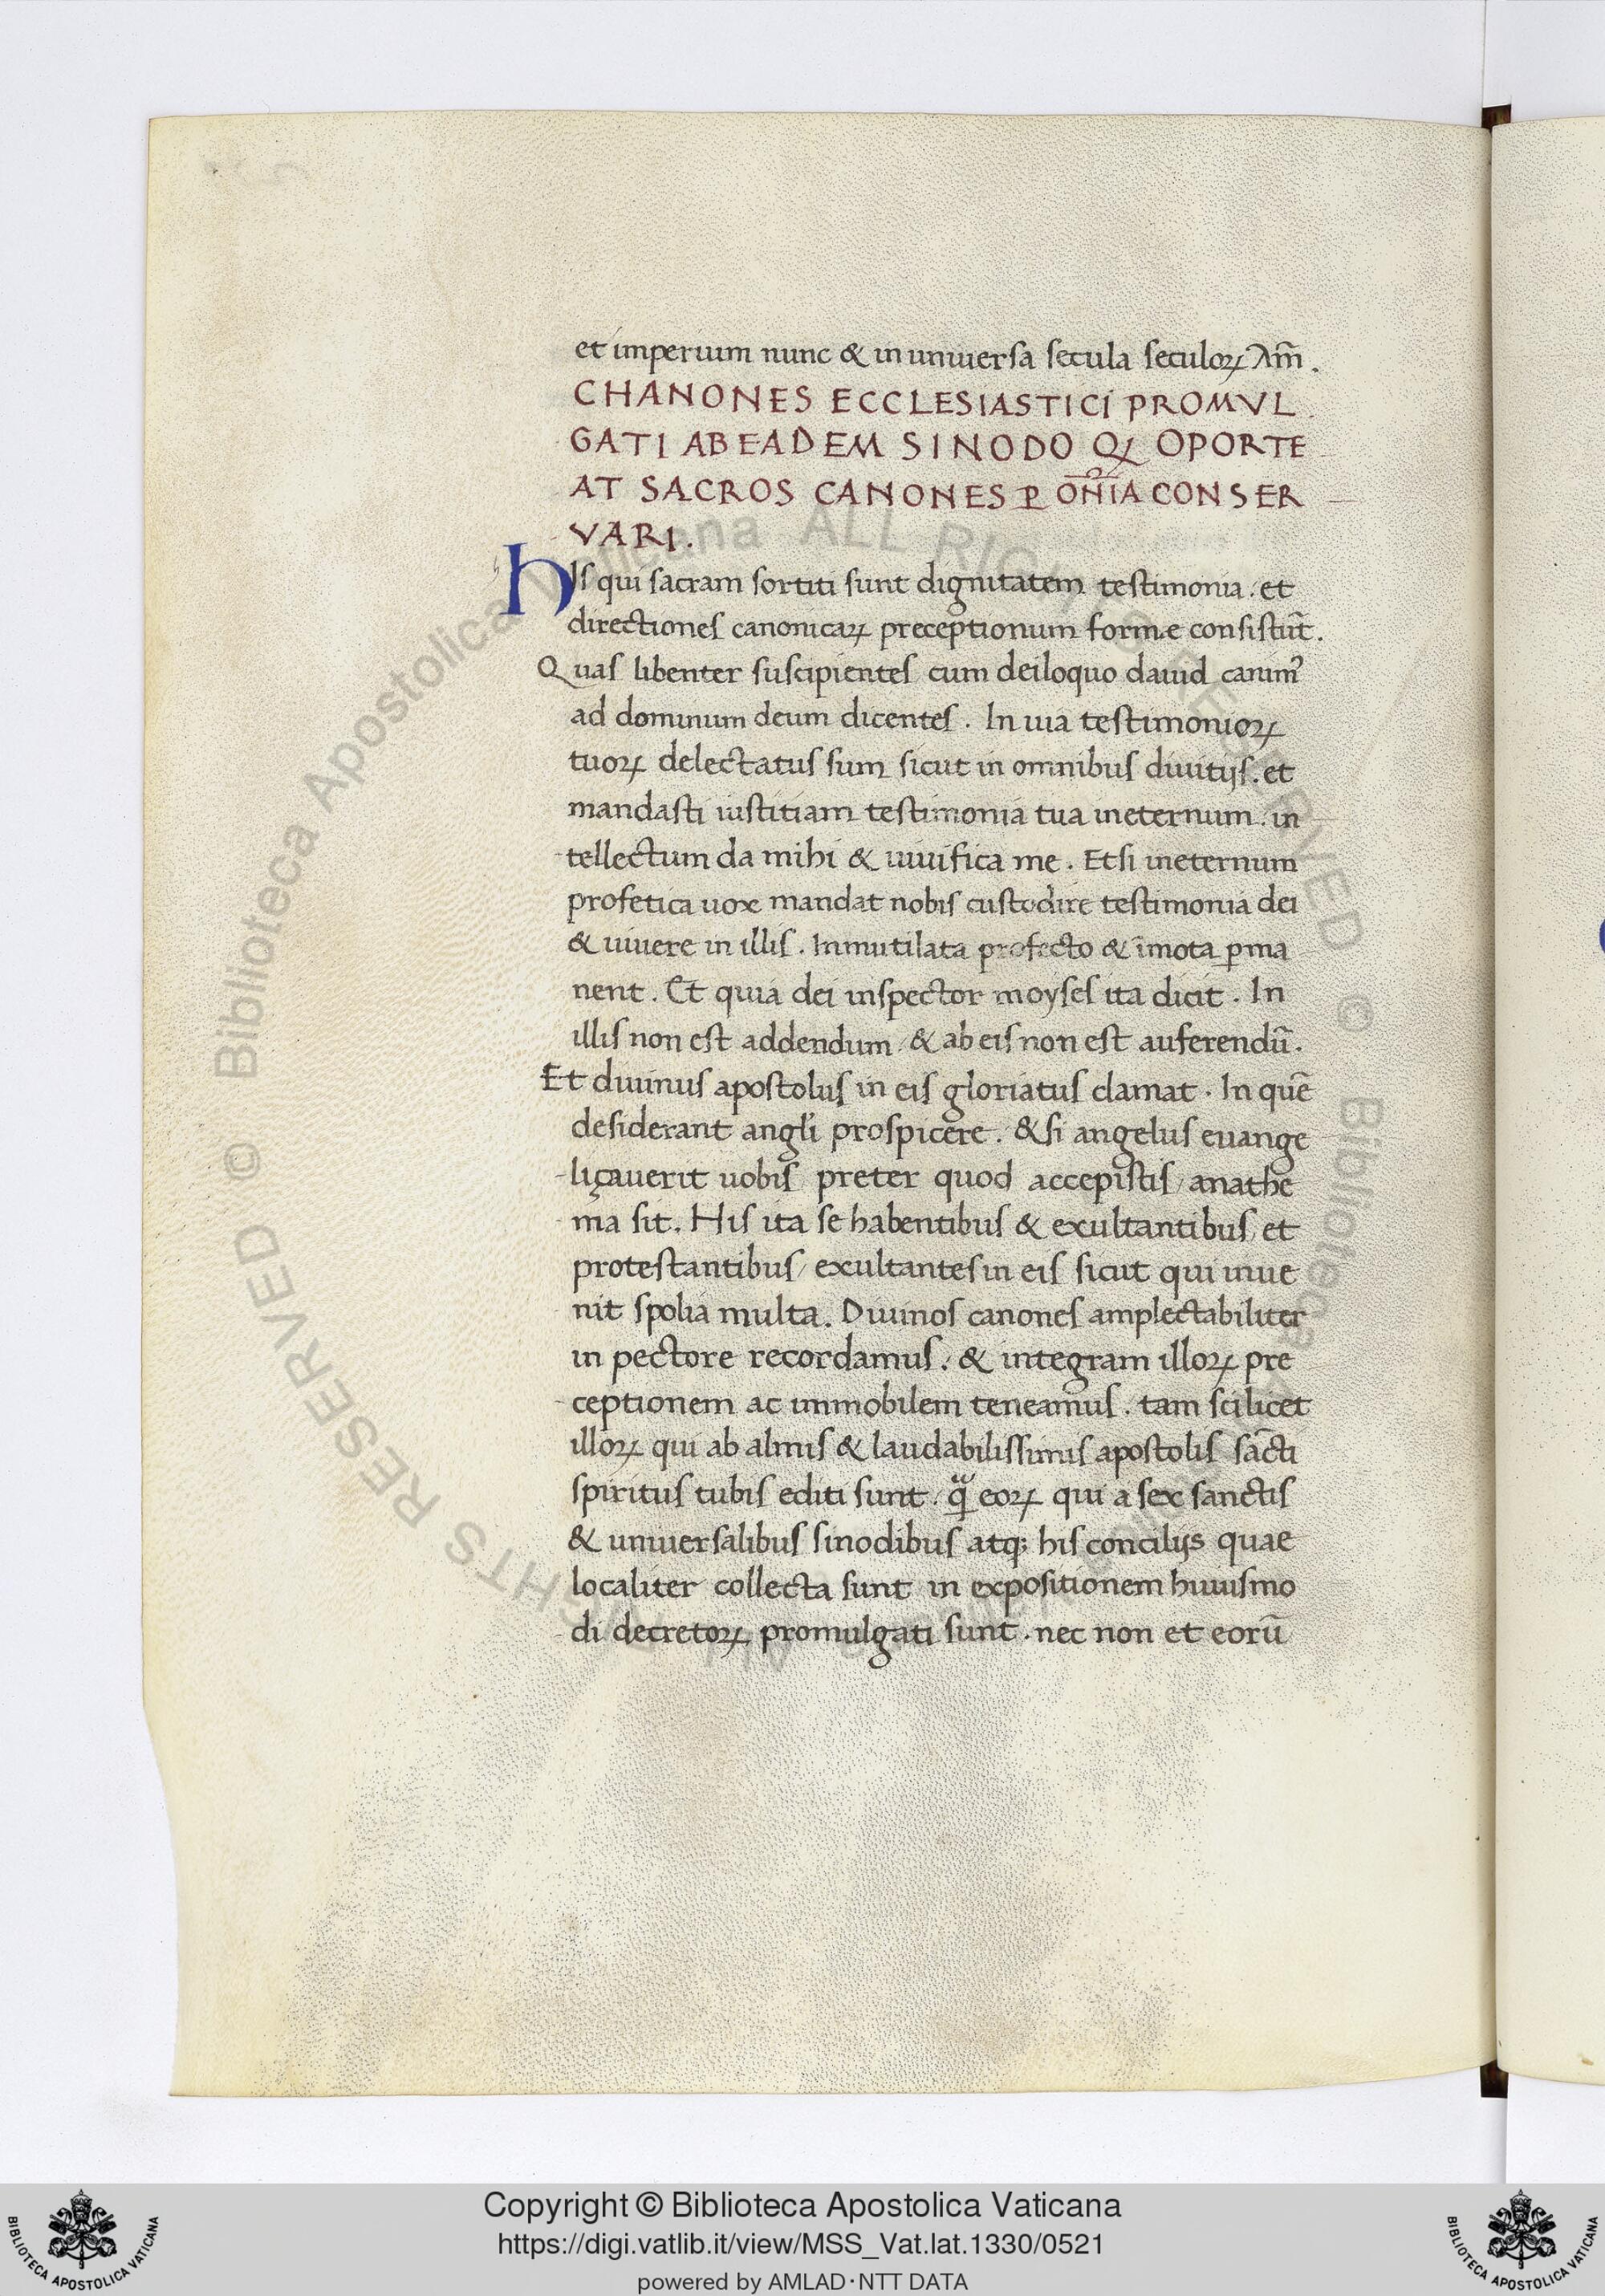 et imperium nunc & in universa secula seculoꝝ Am̄.
CHANONES ECCLESIASTICI PROMVL
GATI AB EADEM SINODO Qꝫ OPORTE
AT SACROS CANONES P̲ OM̄IA CONSER
VARI.
His qui sacram sortiti sunt dignitatem testimonia. et
directiones canonicaꝝ preceptionum formæ consistūt.
Quas libenter suscipientes cum deiloquo dauid canimꝰ
ad dominum deum dicentes. In uia testimonioꝝ
tuoꝝ delectatus sum sicut in omnibus diuitijs. et
mandasti iustitiam testimonia tua ineternum. in
tellectum da mihi & uiuifica me. Et si ineternum
profetica uox mandat nobis custodire testimonia dei
& uiuere in illis. Inmutilata profecto & īmota ꝑma
nent. Et quia dei inspector moyses ita dicit. In
illis non est addendum & ab eis non est auferendū.
Et diuinus apostolus in eis gloriatus clamat. In quē
desiderant angli prospicere. & si angelus euange
liçauerit uobis preter quod accepistis / anathe
ma sit. His ita se habentibus & exultantibus / et
protestantibus / exultantes in eis sicut qui inue
nit spolia multa. Diuinos canones amplectabiliter
in pectore recordamus. & integram illoꝝ pre
ceptionem ac immobilem teneamus. tam scilicet
illoꝝ qui ab almis & laudabilissimis apostolis sācti
spiritus tubis editi sunt. q̃ eoꝝ qui a sex sanctis
& uniuersalibus sinodibus atqꝫ his concilijs quae
localiter collecta sunt in expositionem huiusmo
di decretoꝝ promulgati sunt. nec non et eorū
© Biblioteca Apostolica Vaticana ALL RIGHTS RESERVED © Biblioteca Apostolica Vaticana ALL RIGHTS RESERVED
Copyright © Biblioteca Apostolica Vaticana
https://digi.vatlib.it/view/MSS_Vat.lat.1330/0521
powered by AMLAD·NTT DATA
BIBLIOTECA APOSTOLICA VATICANA
BIBLIOTECA APOSTOLICA VATICANA